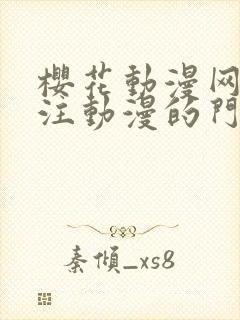 櫻花動漫网
注動漫的門
秦傾_xs8